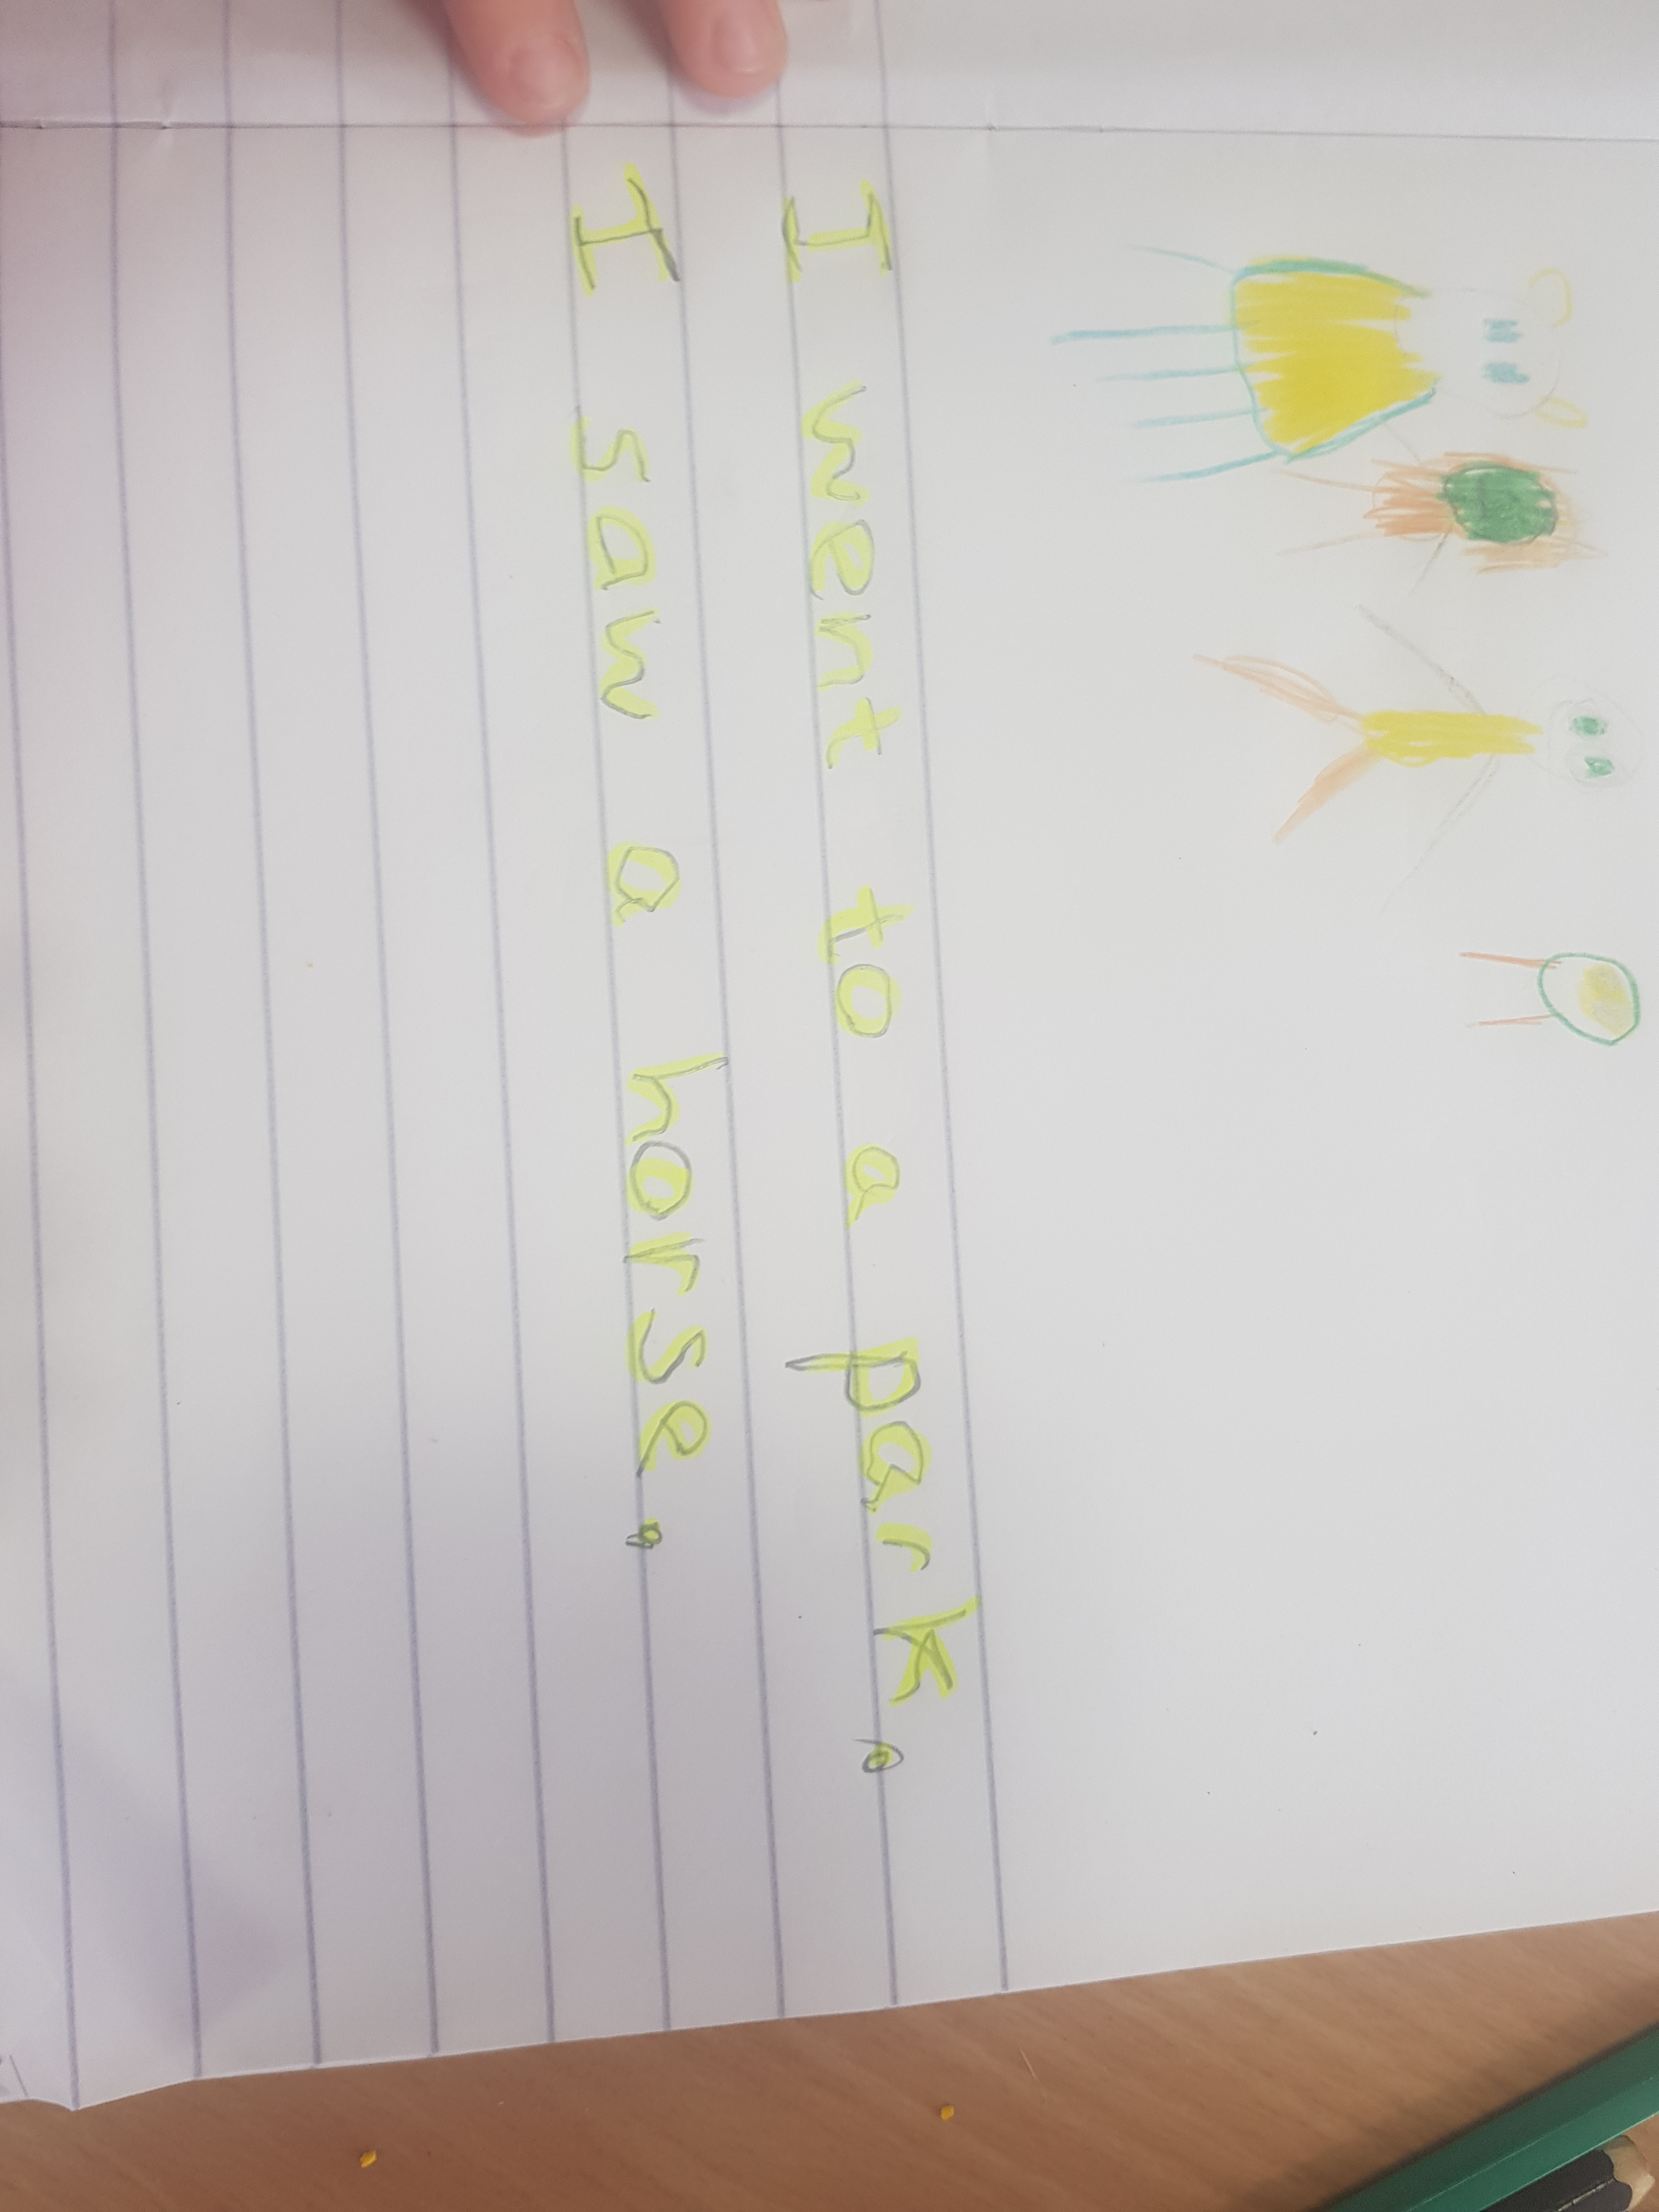 I went to a park.
I saw a horse.